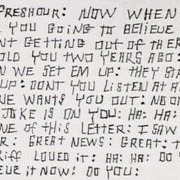 PRESHOUR: NOW WHEN
YOU GOING TO BELIEVE
NT GETTING OUT OF THER
OLD YOU TWO YEARS AGO:
N WE SET EM UP: THEY STA
UP: DONT YOU LISTEN AT A
NE WANTS YOU OUT: NO ON
JOKE IS ON YOU: HA: HA:
NE OF THIS LETTER: I SAW
R: GREAT NEWS: GREAT: T
RIFF LOVED IT: HA: HA: DO Y
EVE IT NOW: DO YOU: